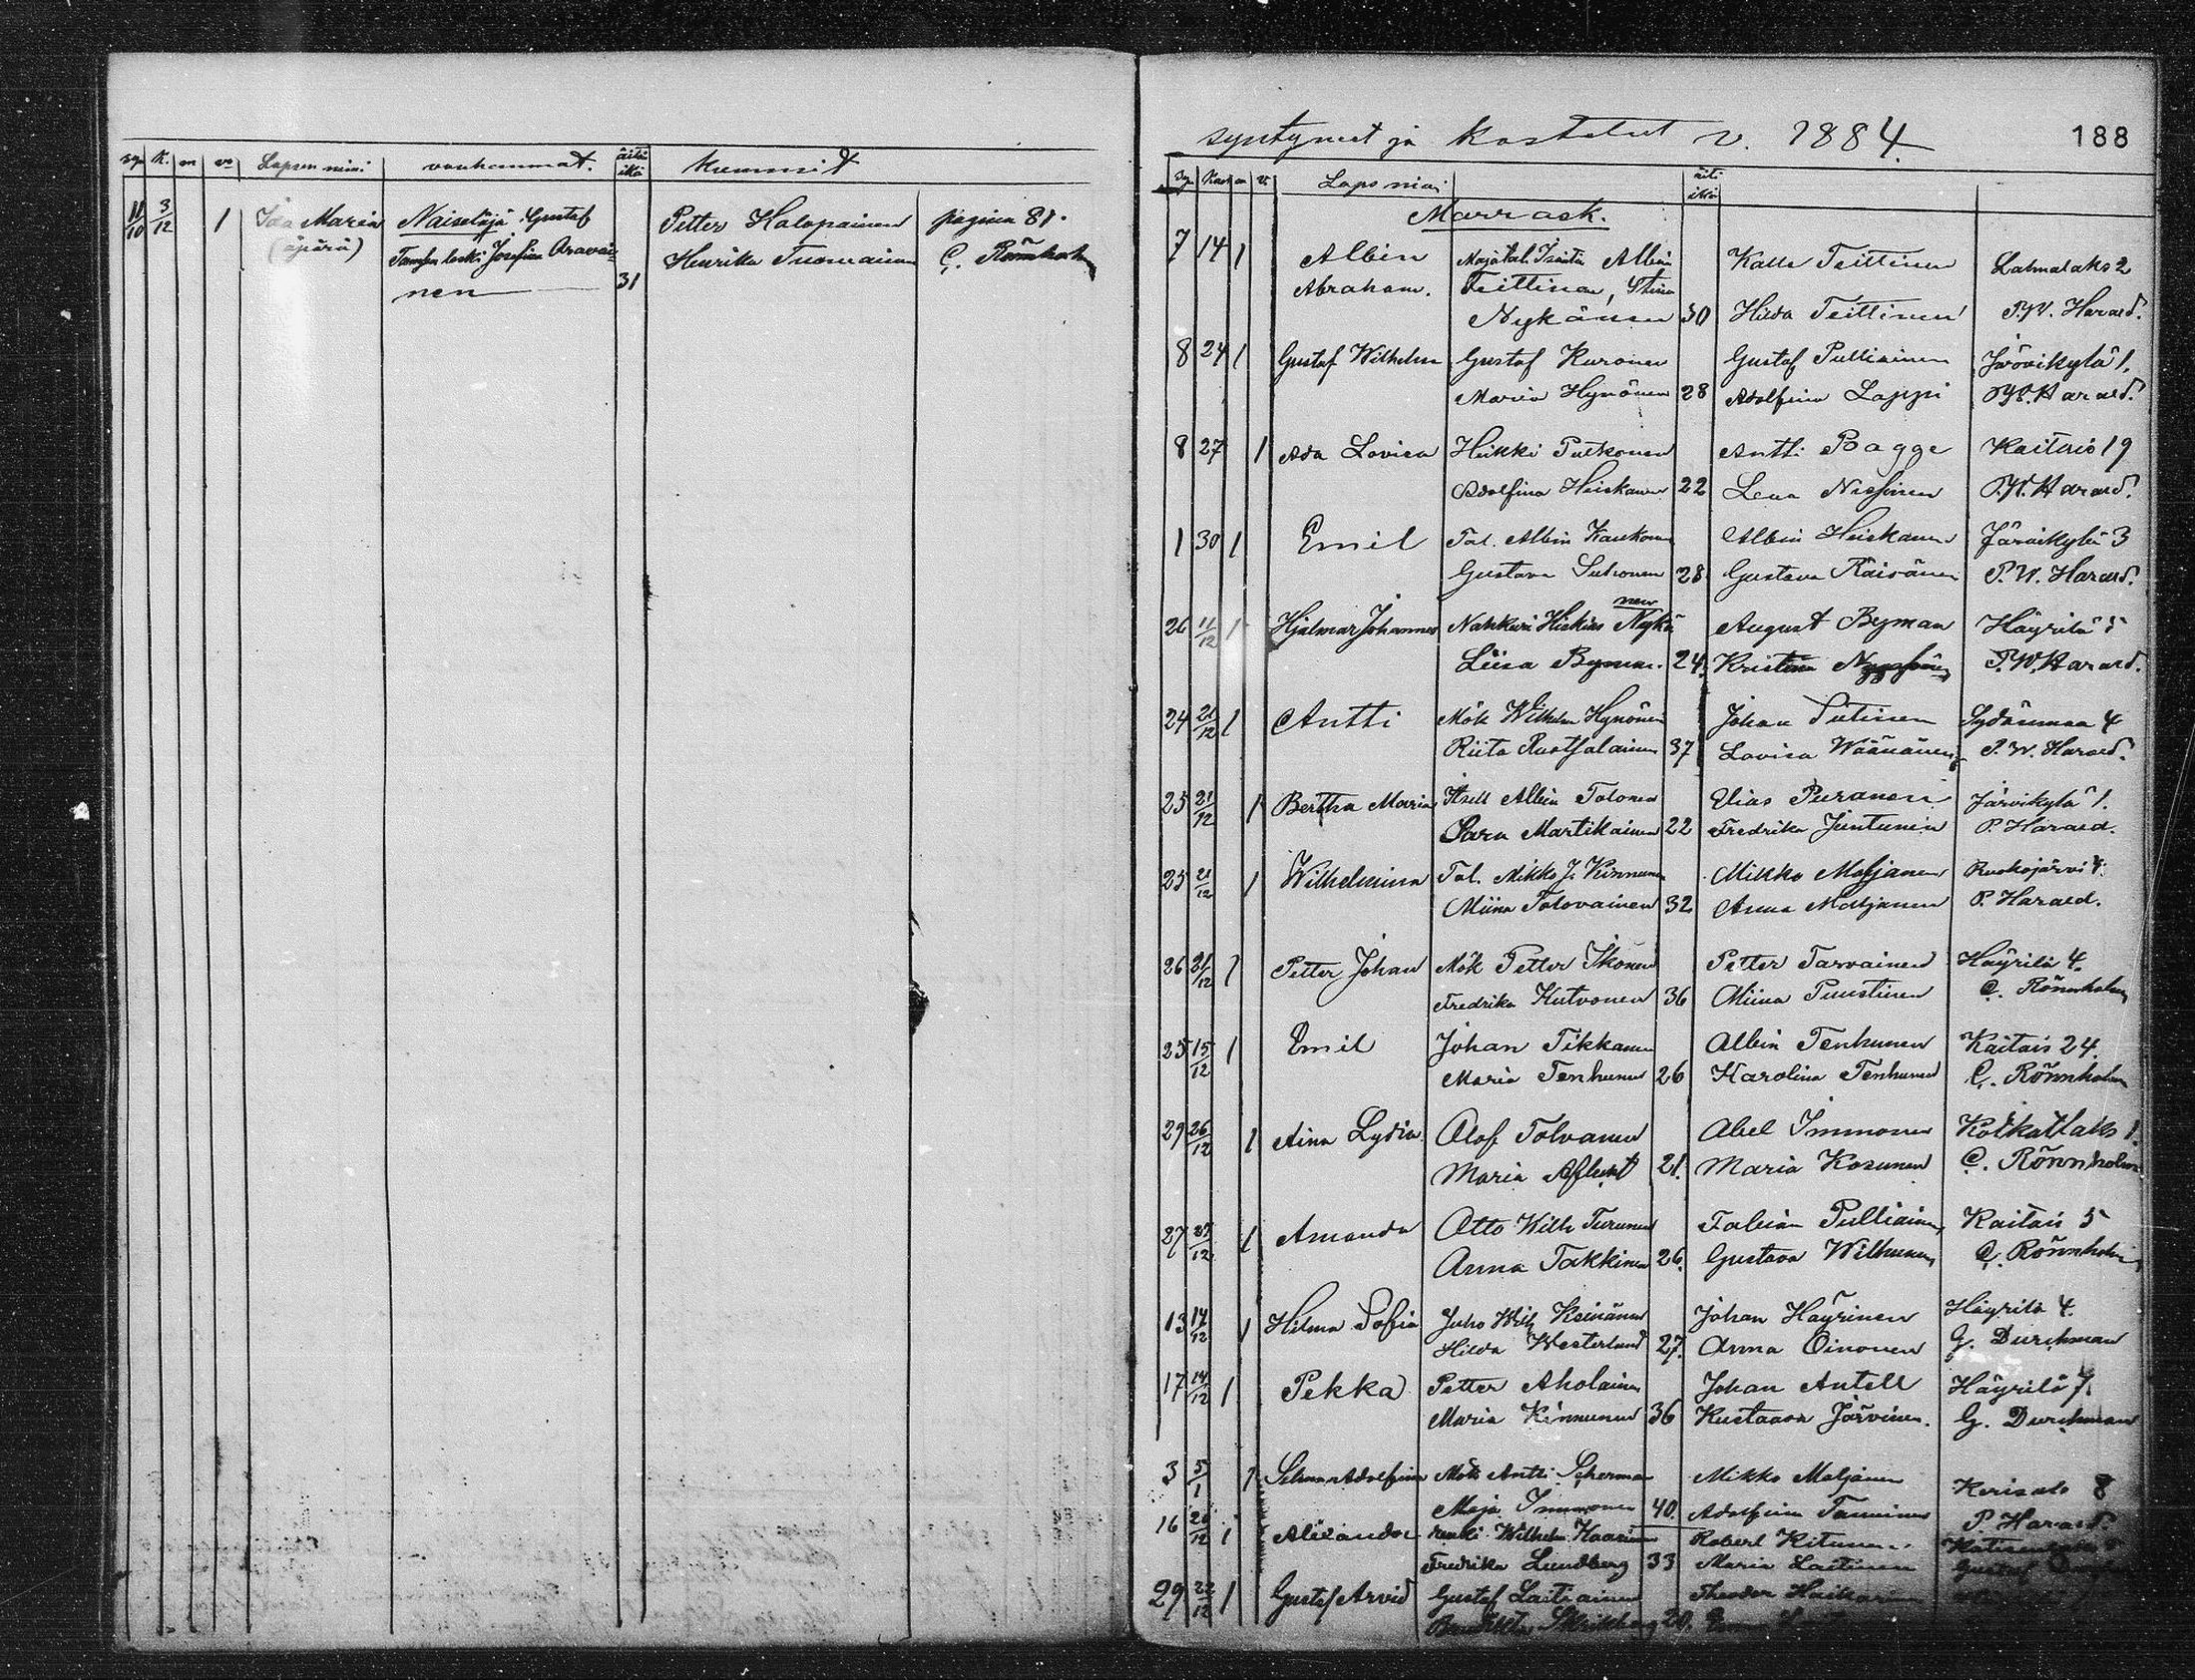 syn K. m vo Lapsen nimi vanhammat. äitin ikä kummit
11/10 3/12 1 Ida Maria Naiseläjä Gustaf Petter Halopainen pagina 81.
(äpärä) leski Josefina Aravai Henrika Tuomainen C. Rönnholm
nen 31
syntyneet ja kastetut v. 1884. 188
Syn Kast m v. Laps nimi äiti ikä
Marrask.
7 14 1 Albin Albin Kalle Teittinen
Abraham. Teittinen, Stina Lahnalaks 2
Nykänen 30 Hilda Teittinen P.W. Harald.
8 24 1 Gustaf Wilhelm Gustaf Kuronen Gustaf Pulliainen Järvikylä 1.
Maria Hynönen 28 Adolfina Lappi P.W. Harald.
8 27 1 Ada Lovisa Heikki Pulkonen Antti Bagge Kaitais 19
Adolfina Heiskanen 22 Lena Nissinen P.W. Harald.
1 30 1 Emil Tal. Albin Kaukonen Albin Heiskanen Järvikylä 3
Gustava Suhonen 28 Gustava Räisänen P.W. Harald.
nen
26 11/12 1 Hjalmar Johannes Nahkuri Hiskias Nykä August Byman Häyrilä 5
Liisa Byman. 24. Kristina P.W. Harald.
24 21/12 1 Antti Mök Wilhelm Hynönen Johan Putinen Sydänmaa 4
Riita Ruotsalainen 37 Lovisa Wäänänen P.W. Harald.
25 21/12 1 Bertha Maria Itsell Albin Tolonen Elias Puranen Järvikylä 1.
Sara Martikainen 22 Fredrika Juntunen P. Harald.
25 21/12 1 Wilhelmina Tal. Mikko J. Kinnunen Mikko Matjanen Ruokojärvi 4.
Miina Tolovainen 32 Anna Matjanen P. Harald.
26 21/12 1 Petter Johan Mök Petter Ikonen Petter Tarvainen Häyrilä 4.
Fredrika Hutvonen 36 Miina Puustinen C. Rönnholm
25 15/12 1 Emil Johan Tikkanen Albin Tenhunen Kaitais 24.
Maria Tenhunen 26 Karolina Tenhunen C. Rönnholm
29 26/12 1 Aina Lydia Olof Tolvanen Abel Immonen Kotkatlaks 1.
Maria Aflecht 21. Maria Kosunen C. Rönnholm
27 25/12 1 Amanda Otto Wilh Turunen Fabian Pulliainen Kaitais 5
Anna Takkinen 26. Gustava Wilhunen C. Rönnholm
13 14/12 1 Hilma Sofia Juho Wilh Keinänen Johan Häyrinen Häyrilä 4.
Hilda Westerlund 27. Anna Oinonen G. Durchman
17 14/12 1 Pekka Petter Aholainen Johan Antell Häyrilä 7.
Maria Kinnunen 36 Kustaava Järvinen. G. Durchman
3 5/1 1 Selma Adolfina Mök Antti Scherman Mikko Maljanen Kerisalo 8
Maja Immonen 40. Adolfina Tanninen P. Harald.
16 20/12 1 Alexander Wilhelm Haarinen Robert Kitunen
Fredrika Lundberg 33 Maria Laitinen
29 22/12 1 Gustaf Arvid Gustaf Laitiainen Theodor
20.